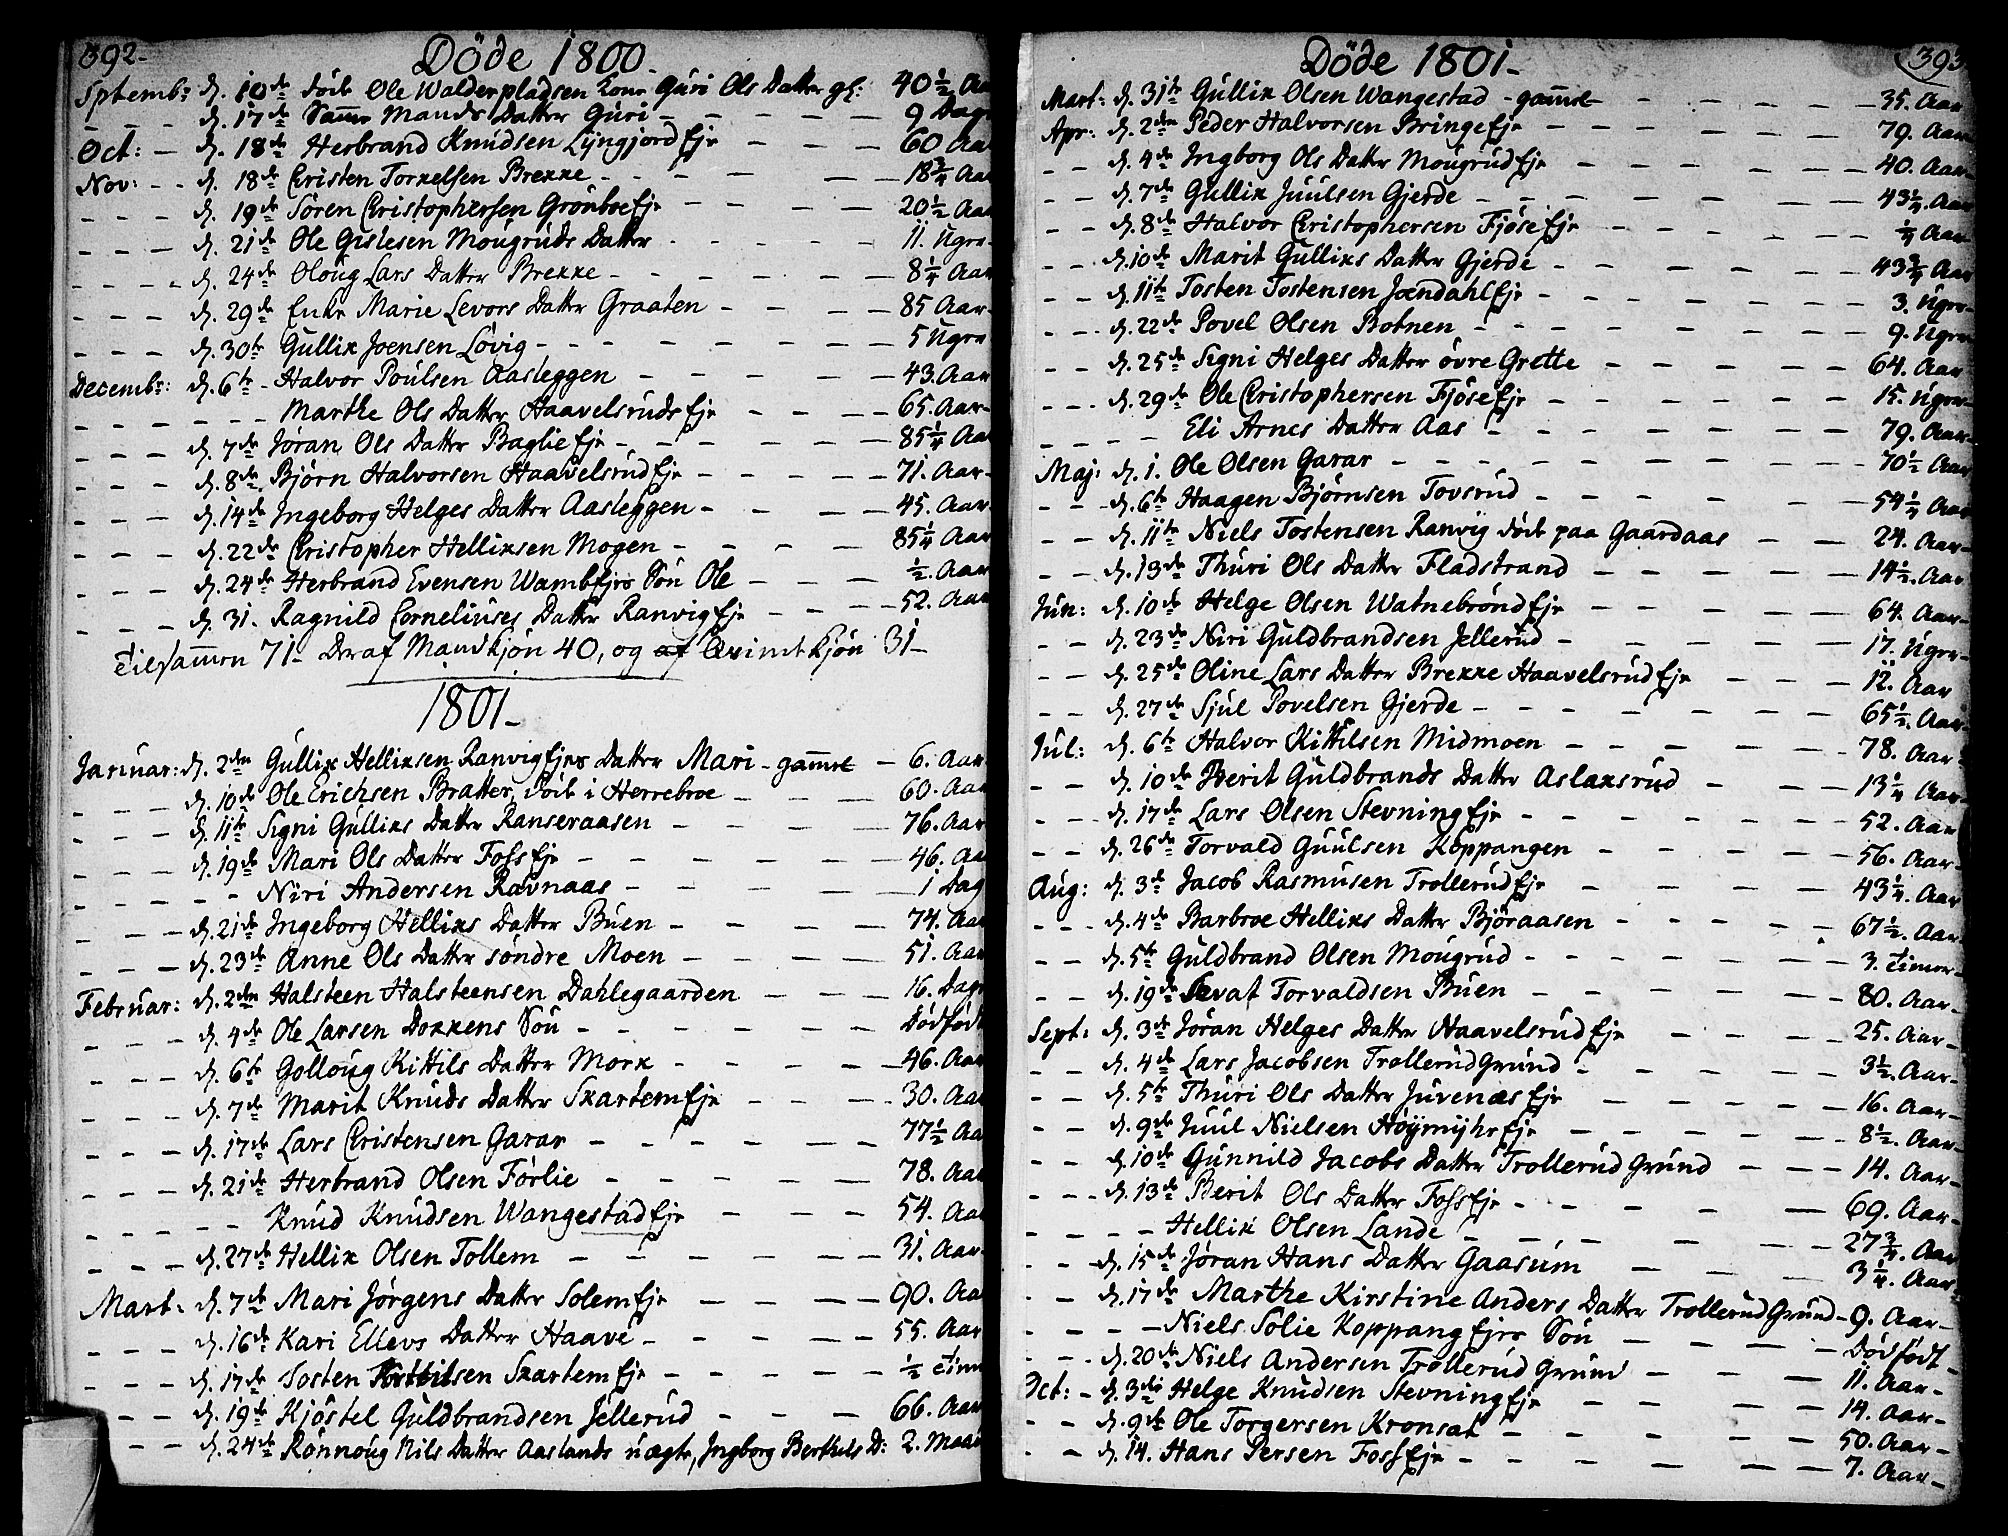 392.
Döde 1800.
Septembr: d. 10de döde Ole Walderpladsen Kone Guri Ols Datter gl: 40½ Aa
d. 17de Samme Mands Datter Guri 9 Dage
Oct: d. 18de Herbrand Knudsen Lyngjord Eje 60 Aar
Nov: d. 18de Cristen Torkelsen Brekke 18¾ Aar
d. 19de Sören Cristophersen Grönboe Eje 20½ Aar
d. 21de Ole Gislesen Mougruds Datter 11. Uger
d. 24de Oloug Lars Datter Brekke 8¼ Aar
d. 29de Enke Marie Levors Datter Graaten 85 Aar
d. 30te Gullik Joensen Lövig 5 Uger
Decembr: d. 6te Halvor Poulsen Aasleggen 43. Aar
Marthe Ols Datter Haavelsruds Eje 65. Aar
d. 7de Jöran Ols Datter Baglie Eje 85¼ Aar
d. 8de Björn Halvorsen Haavelsrud Eje 71. Aar
d. 14de Ingeborg Helges Datter Aasleggen 45. Aar
d. 22de Cristopher Helliksen Mogen 85¼ Aar
d. 24de Herbrand Evensen Wamb Ejes Sön Ole ½. Aar
d. 31. Ragnild Corneliuses Datter Ranvig Eje 52. Aar
Tilsamen 71 Deraf Mandkjön 40, og af Qvindekjön 31
1801
Januar: d. 2den Gullik Helliksen Ranvig Ejes Datter Mari gammel 6. Aar
d. 10de Ole Erichsen Bratter, död i Herrebroe 60. Aar
d. 11te Signi Gulliks Datter Ranseraasen 76. Aar
d. 19de Mari Ols Datter Foss Eje 46. Aar
Niri Andersen Ravnaas 1 Dag
d. 21de Ingeborg Helliks Datter Buen 74. Aar
d. 23de Anne Ols Datter söndre Moen 51. Aar
Februar: d. 2den Halsteen Halsteensen Dahlegaarden 16. Dage
d. 4de Ole Larsen Dokkens Sön Dödfödt
d. 6te Golloug Kittils Datter Mork 46. Aar
d. 7de Marit Knuds Datter Skartem Eje 30. Aar
d. 17de Lars Cristensen Garar 77½ Aar
d. 21de Herbrand Olsen Förlie 78. Aar
Knud Knudsen Wangestad Eje 54. Aar
d. 27de Hellik Olsen Tollem 31. Aar
Mart: d. 7de Mari Jörgens Datter Solem Eje 90. Aar
d. 16de Kari Ellevs Datter Haave 55. Aar
d. 17de Tosten Kittilsen Skartem Eje ½ Time
d. 19de Kjöstel Guldbrandsen Jellerud 66. Aar
d. 24de Rönnoug Nils Datter Aaslands uægte, Ingborg Berthels D: 2. Maan
393
Döde 1801
Mart: d. 31te Gullik Olsen Wangestad gammel 35. Aar
Apr: d. 2den Peder Halvorsen Bringe Eje 79. Aar
d. 4de Ingborg Ols Datter Mougrud Eje 40. Aar
d. 7de Gullik Juulsen Gjerde 43¼. Aar
d. 8de Halvor Cristophersen Fjöse Eje ¼ Aar
d. 10de Marit Gulliks Datter Gjerde 43¾ Aar
d. 11te Tosten Tostensen Joendahl Eje 3. Uger
d. 22de Povel Olsen Botnen 9. Uger
d. 25de Signi Helges Datter övre Grette 64. Aar
d. 29de Ole Cristophersen Fjöse Eje 15. Uger
Eli Arnes Datter Aas 79. Aar
Maj: d. 1. Ole Olsen Garar 70½ Aar
d. 6te Haagen Björnsen Tovsrud 54¼ Aar
d. 11te Niels Tostensen Ranvig död paa Gaardaas 24. Aar
d. 13de Thuri Ols Datter Fladstrand 14½. Aar
Jun: d. 10de Helge Olsen Watnebrönd Eje 64. Aar
d. 23de Niri Guldbrandsen Jellerud 17. Uger
d. 25de Oline Lars Datter Brekke Haavelsrud Eje 12. Aar
d. 27de Sjul Povelsen Gjerde 65½. Aar
Jul: d. 6te Halvor Kittilsen Midmoen 78. Aar
d. 10de Berit Guldbrands Datter Aslaksrud 13¼ Aar
d. 17de Lars Olsen Stevning Eje 52. Aar
d. 26de Torvald Guulsen Koppangen 56. Aar
Aug: d. 3de Jacob Rasmusen Trollerud Eje 43¼. Aar
d. 4de Barbroe Helliks Datter Björaasen 67½. Aar
d. 5te Guldbrand Olsen Mougrud 3. Timer
d. 19de Sevat Torvaldsen Buen 80. Aar
Sept: d. 3de Jöran Helges Datter Haavelsrud Eje 25. Aar
d. 4de Lars Jacobsen Trollerud Grund 3½. Aar
d. 5te Thuri Ols Datter Juvenæs Eje 16. Aar
d. 9de Juul Nielsen Höymyhr Eje 8½. Aar
d. 10de Gunnild Jacobs Datter Trollerud Grund 14. Aar
d. 13de Berit Ols Datter Foss Eje 69. Aar
Hellik Olsen Lande 27¾. Aar
d. 15de Jöran Hans Datter Gaasum 3¼. Aar
d. 17de Marthe Kirstine Anders Datter Trollerud Grund 9. Aar
Niels Solie Koppang Ejes Sön Dödfödt
d. 20de Niels Andersen Trollerud Grund 11. Aar
Oct: d. 3die Helge Knudsen Stevning Eje 14. Aar
d. 9de Ole Torgersen Kronsat 50. Aar
d. 14. Hans Persen Foss Eje 7. Aar